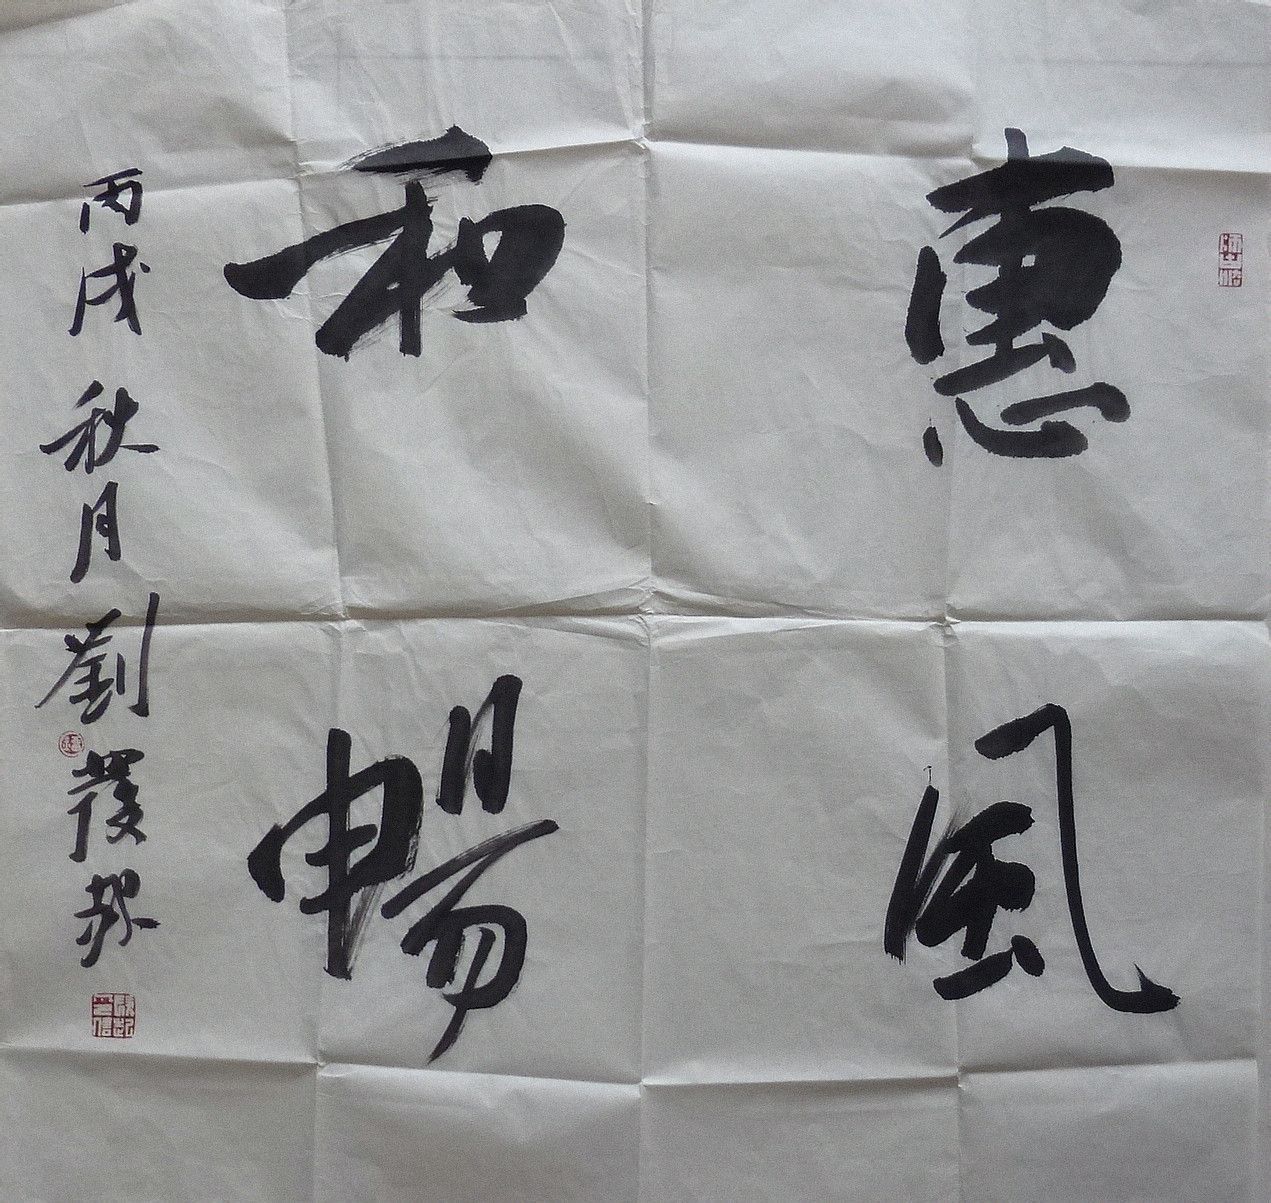 惠風
和暢
丙戌秋月劉